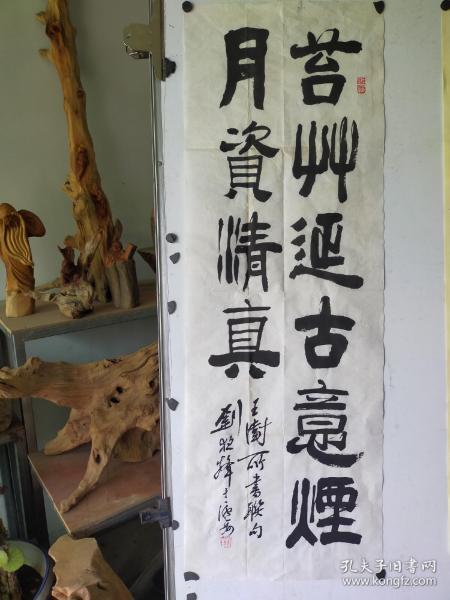 苔艸延古意煙
月資清真
王澍所書聯句
劉
孔夫子旧书网
www.kongfz.com